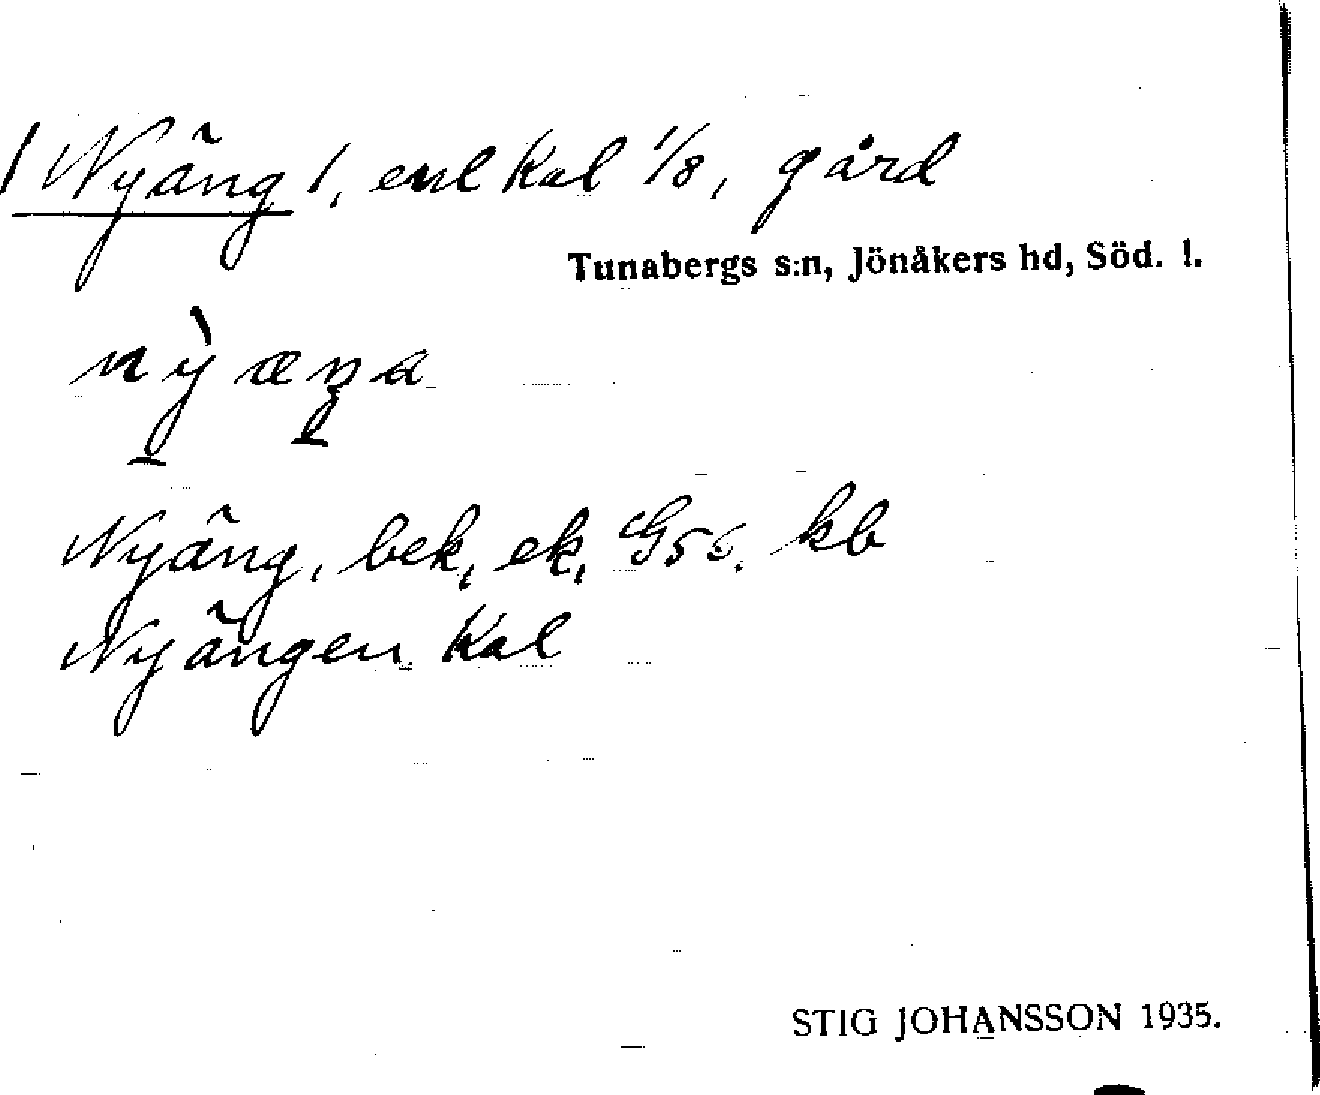 Nyäng 1, enl kal 1/8, gård
Tunabergs s:n, Jönåkers hd, Söd. l.
Nyäng, bek, ek, GSS. kb
Nyängen Kal
STIG JOHANSSON 1935.